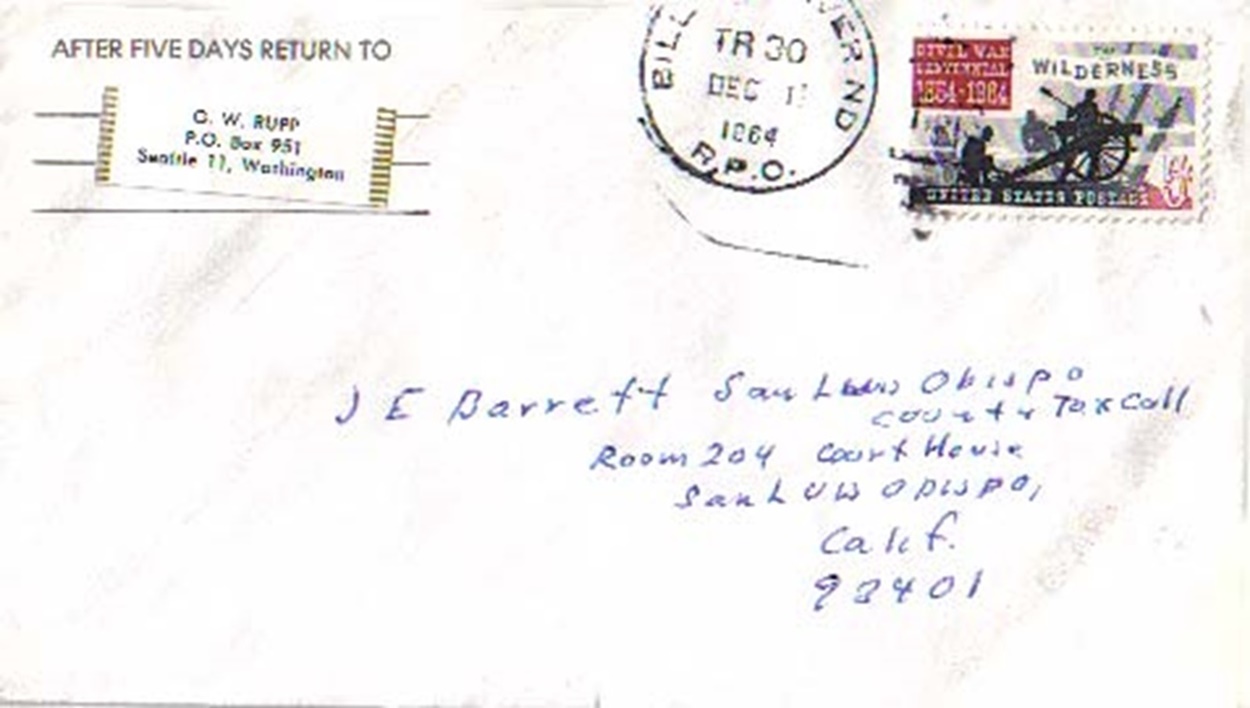 AFTER FIVE DAYS RETURN TO
O. W. RUPP
P.O. Box 951
Seattle 11, Washington
BILL VER ND
TR 30
DEC 1
1964
R.P.O.
CIVIL WAR
CENTENNIAL
1864-1964
THE
WILDERNESS
UNITED STATES POSTAGE
J E Barrett San Luis Obispo
County Tax Coll
Room 204 Court House
San Luis Obispo,
Calif.
93401